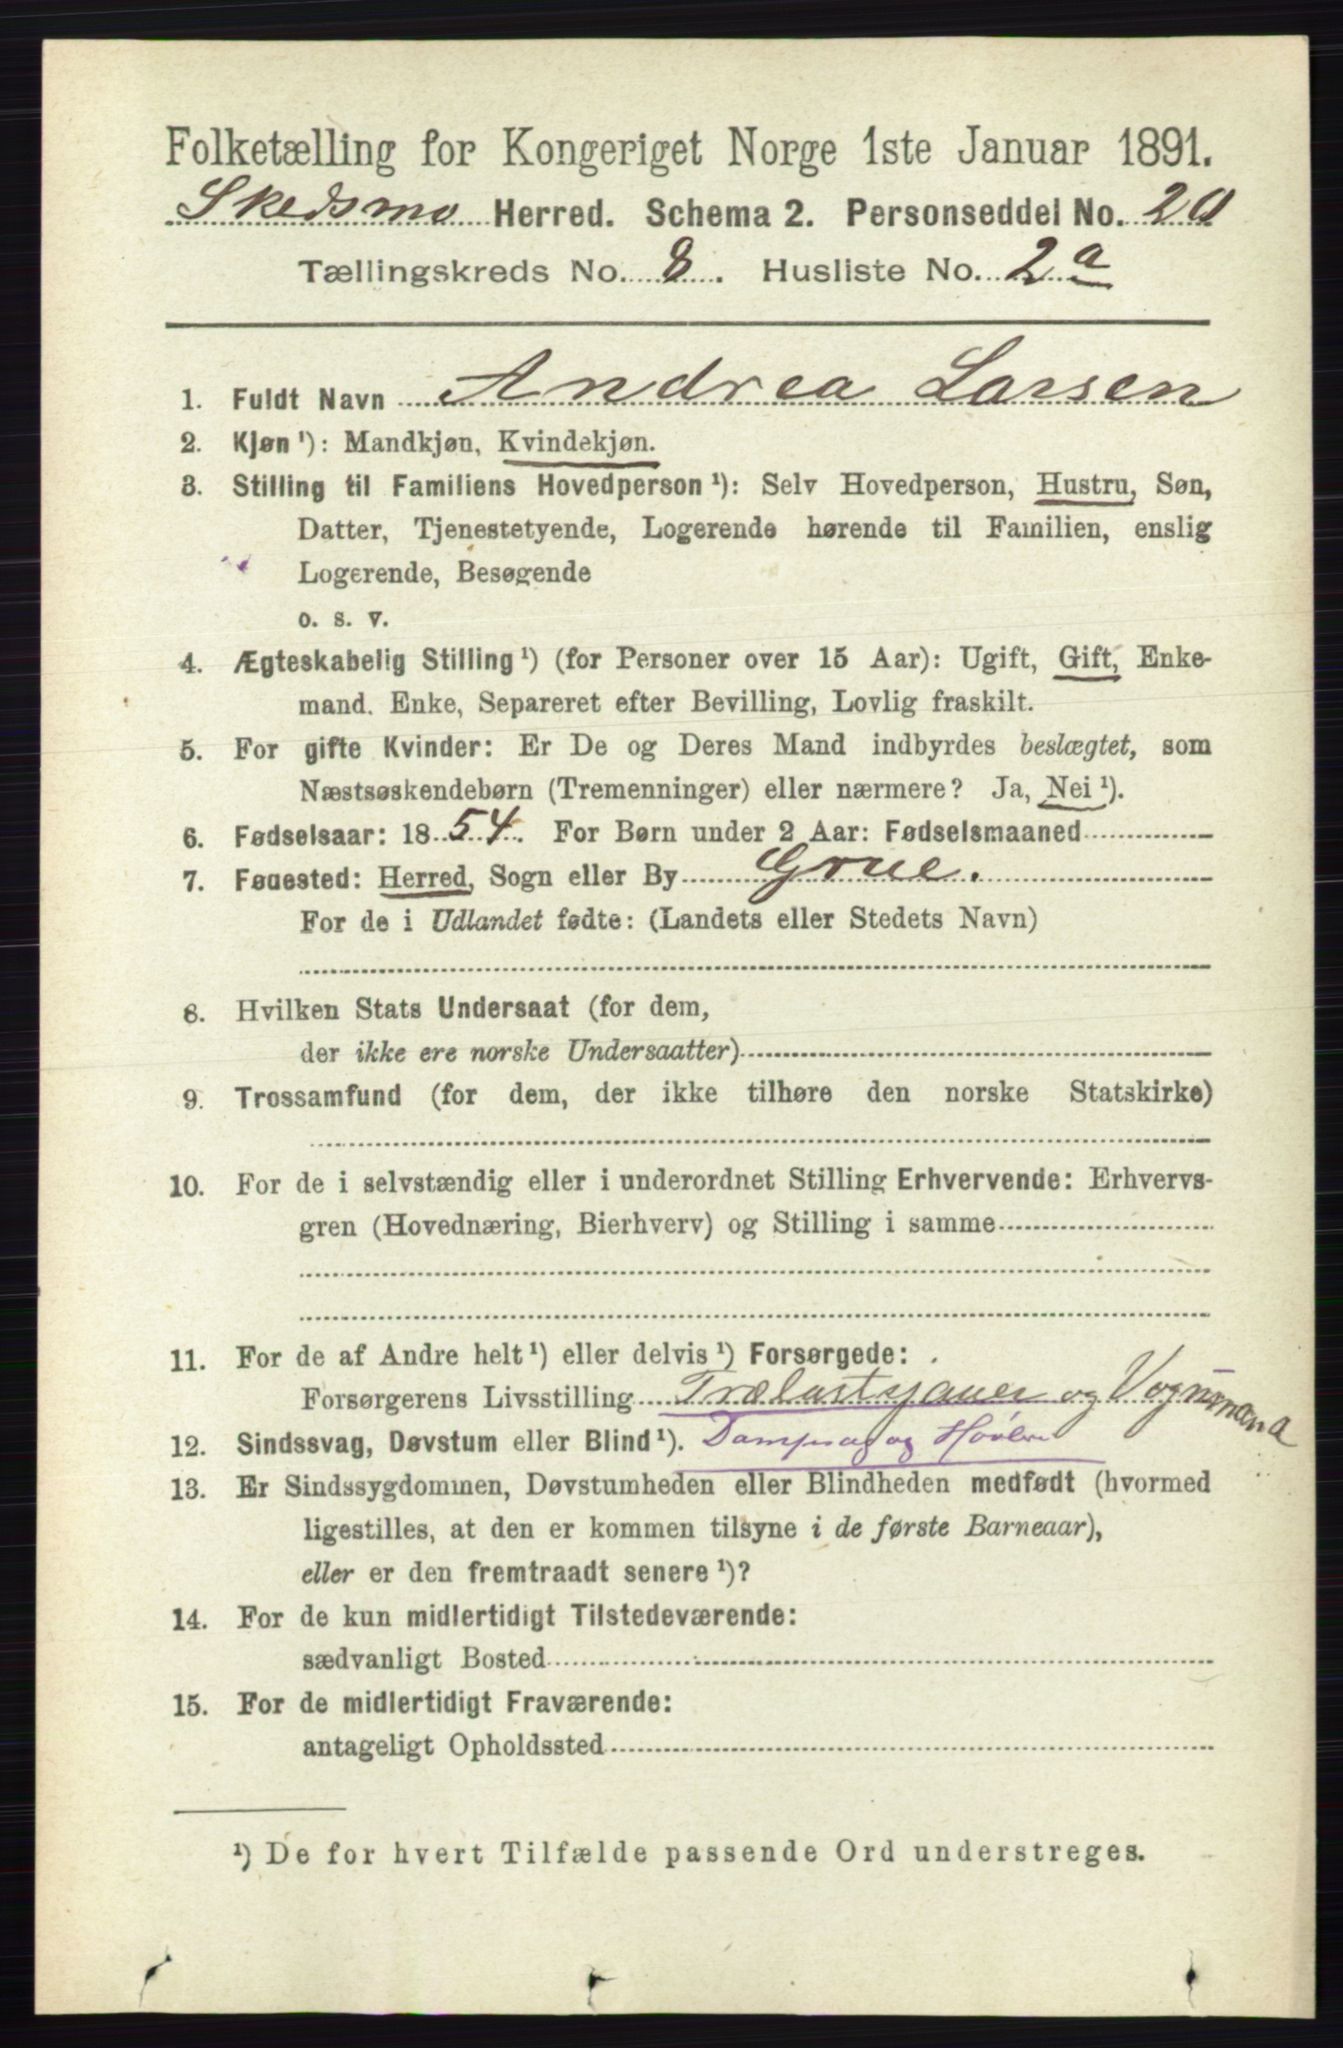 Folketælling for Kongeriget Norge 1ste Januar 1891.
Skedsmo Herred. Schema 2. Personseddel No. 20
Tællingskreds No. 8. Husliste No. 2 a
1. Fuldt Navn Andrea Larsen
2. Kjøn ¹): Mandkjøn, Kvindekjøn.
3. Stilling til Familiens Hovedperson ¹): Selv Hovedperson, Hustru, Søn,
Datter, Tjenestetyende, Logerende hørende til Familien, enslig
Logerende, Besøgende
o. s. v.
4. Ægteskabelig Stilling ¹) (for Personer over 15 Aar): Ugift, Gift, Enke-
mand. Enke, Separeret efter Bevilling, Lovlig fraskilt.
5. For gifte Kvinder: Er De og Deres Mand indbyrdes beslægtet, som
Næstsøskendebørn (Tremenninger) eller nærmere? Ja, Nei ¹).
6. Fødselsaar: 1854. For Børn under 2 Aar: Fødselsmaaned
7. Føuested: Herred, Sogn eller By Grue.
For de i Udlandet fødte: (Landets eller Stedets Navn)
8. Hvilken Stats Undersaat (for dem,
der ikke ere norske Undersaatter)
9. Trossamfund (for dem, der ikke tilhøre den norske Statskirke)
10. For de i selvstændig eller i underordnet Stilling Erhvervende: Erhvervs-
gren (Hovednæring, Bierhverv) og Stilling i samme
11. For de af Andre helt ¹) eller delvis ¹) Forsørgede:
Forsørgerens Livsstilling Trælastsjauer og Vognmand
12. Sindssvag, Døvstum eller Blind ¹). Dampsag og Høvleri
13. Er Sindssygdommen, Døvstumheden eller Blindheden medfødt (hvormed
ligestilles, at den er kommen tilsyne i de første Barneaar),
eller er den fremtraadt senere ¹)?
14. For de kun midlertidigt Tilstedeværende:
sædvanligt Bosted
15. For de midlertidigt Fraværende:
antageligt Opholdssted
¹) De for hvert Tilfælde passende Ord understreges.